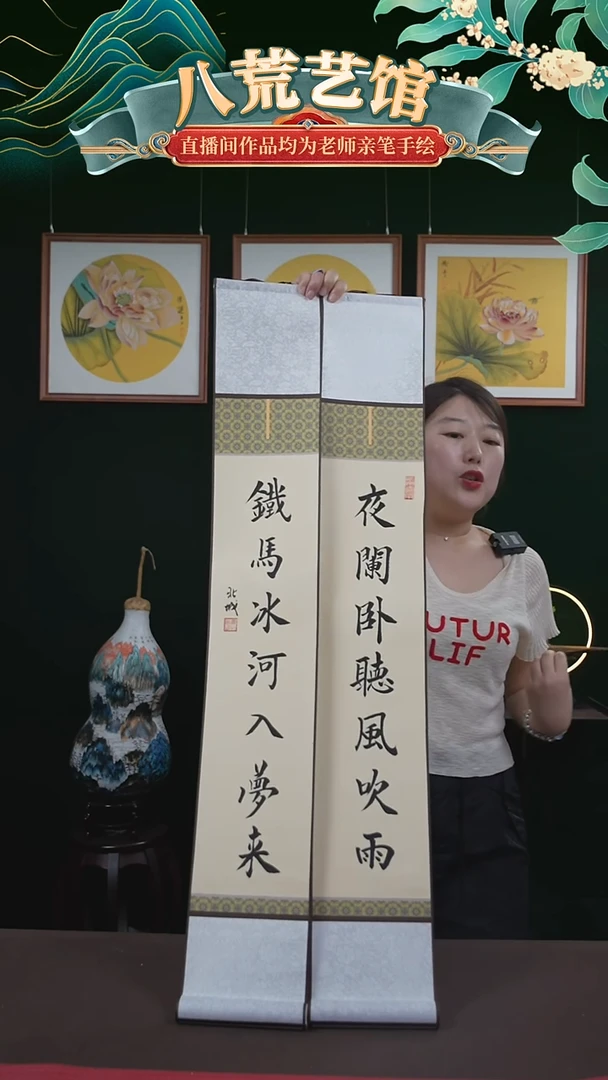 八荒艺馆
直播间作品均为老师亲笔手绘
夜闌卧聽風吹雨
鐵馬冰河入夢来
北城
UTUR
LIF